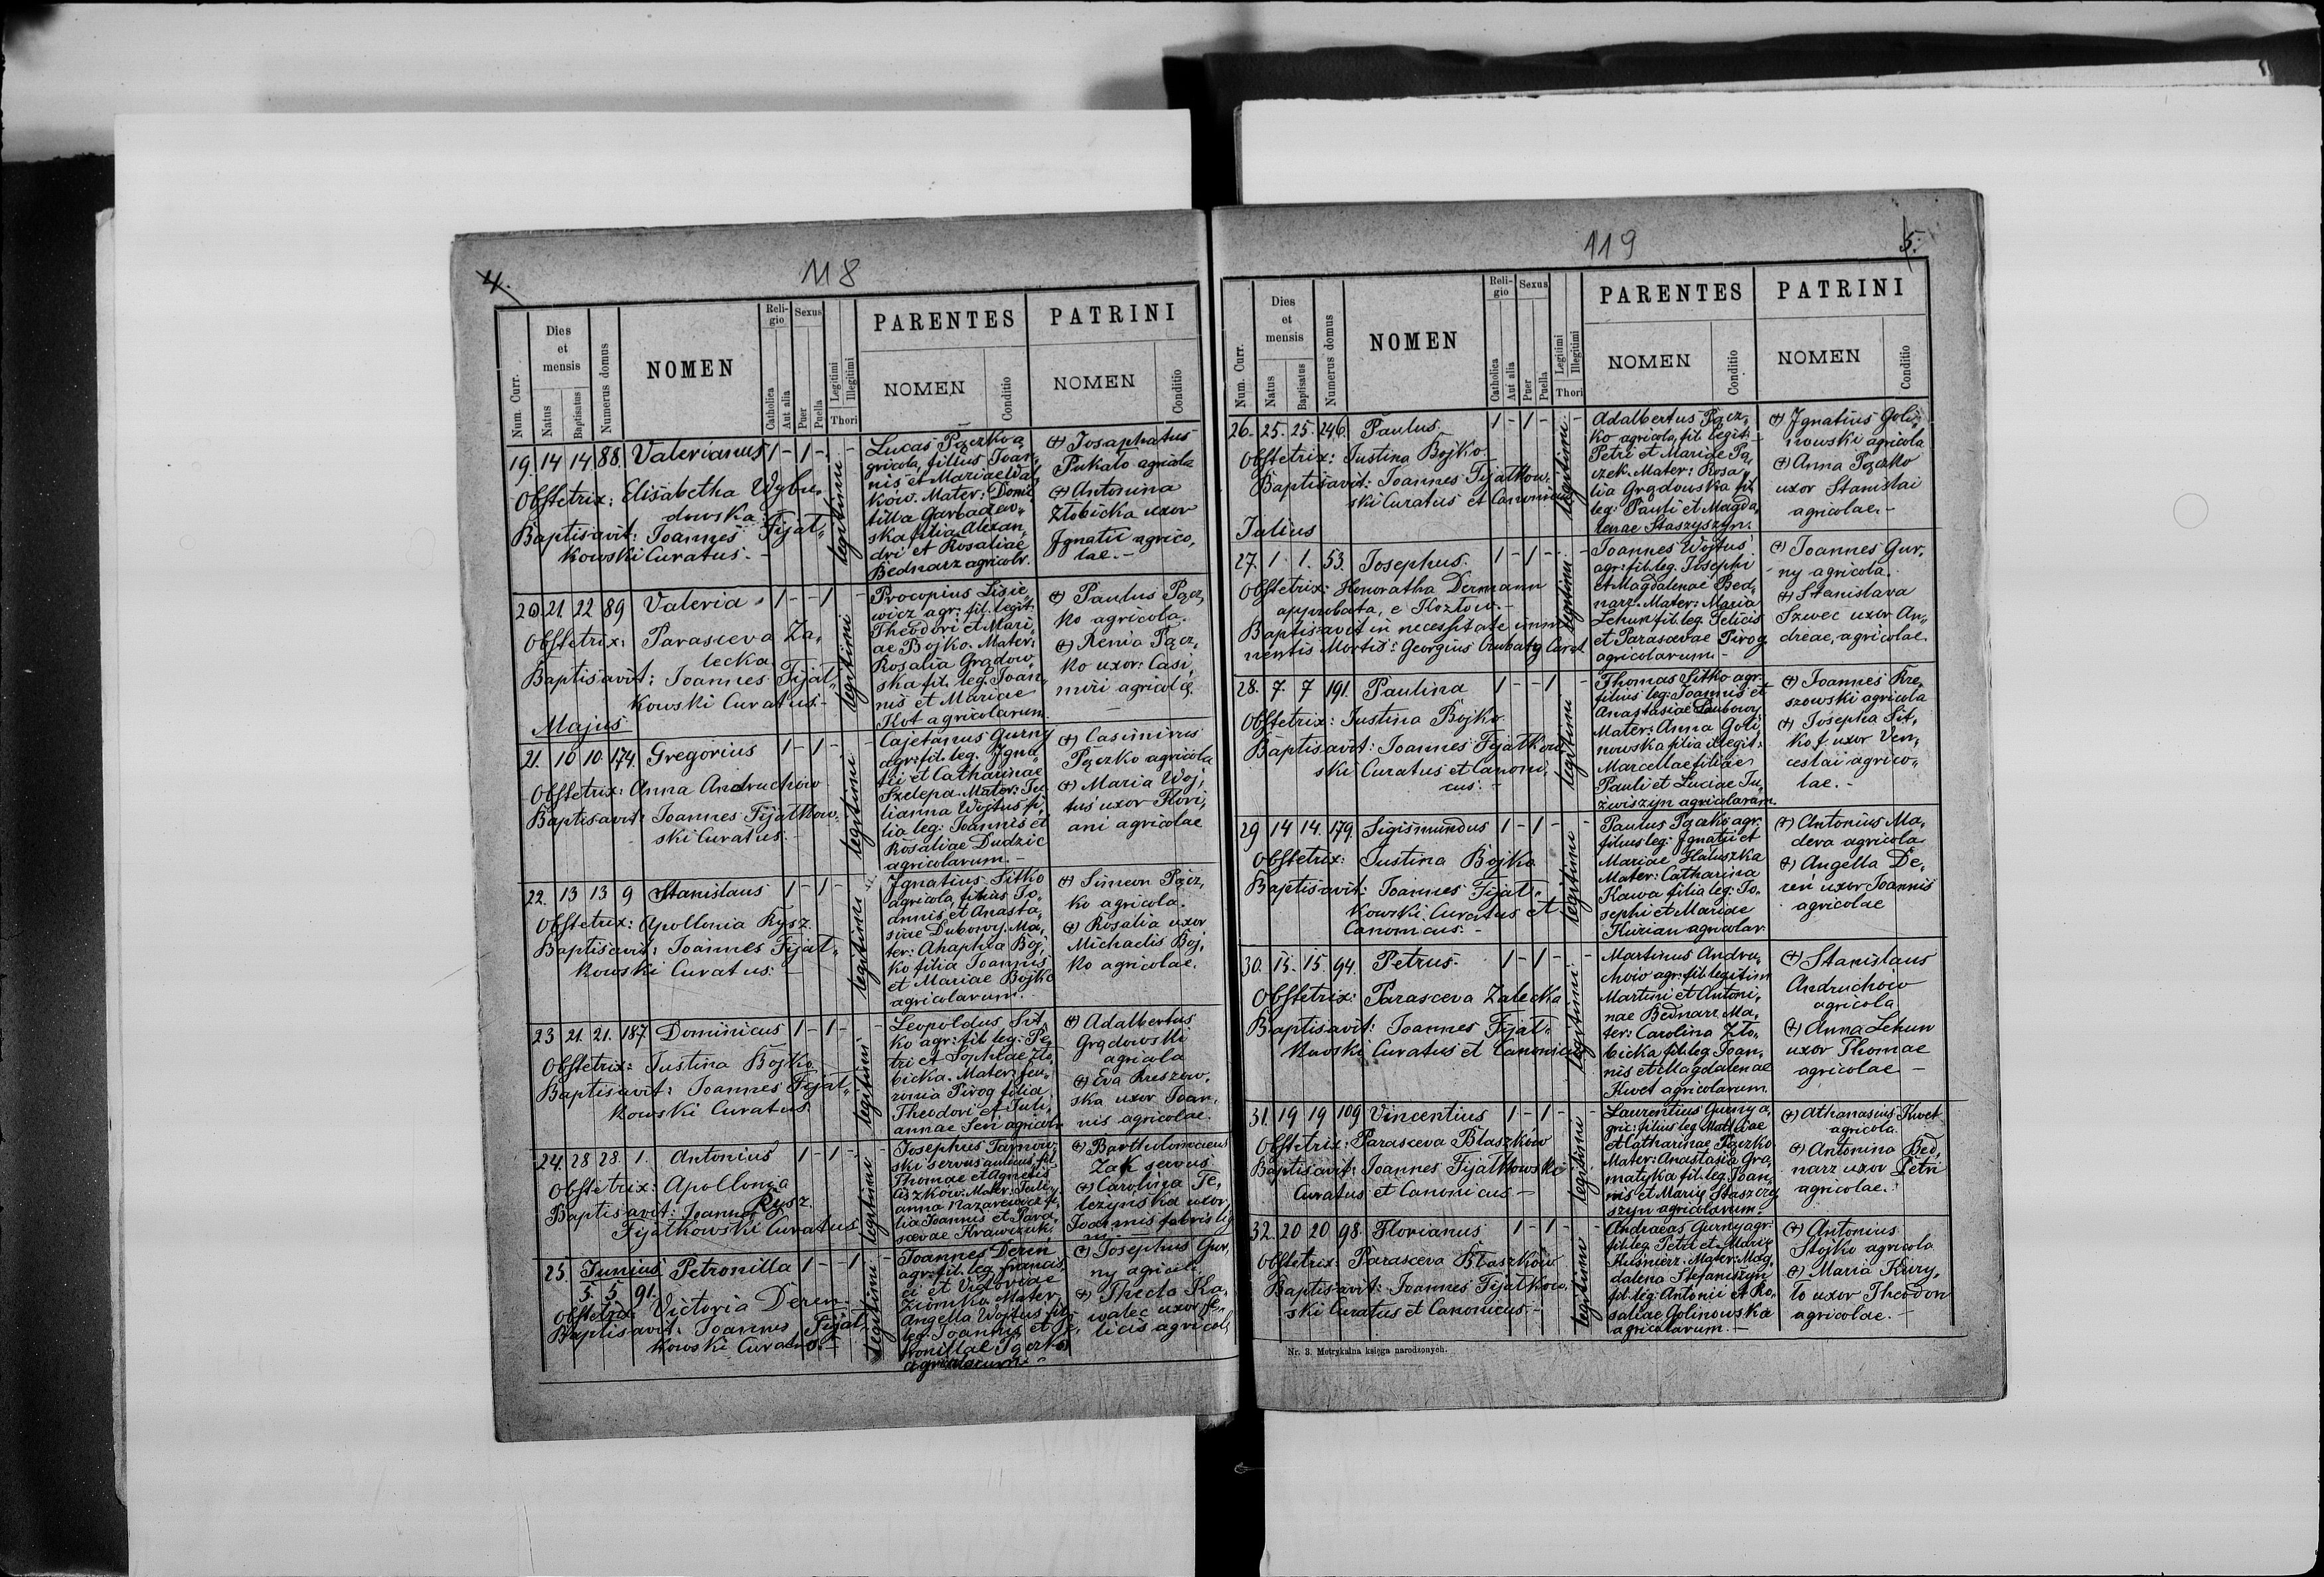 4.
118
Num. Curr.
Dies et mensis
Natus
Baptisatus
Numerus domus
NOMEN
Reli-gio
Catholica
Aut alia
Sexus
Puer
Puella
Legitimi
Illegitimi
Thori
PARENTES
NOMEN
Conditio
PATRINI
NOMEN
Conditio
19. 14 14 88. Valerianus 1 - 1 - -
Obstetrix: Elisabetha Wybu„
dowska
Baptisavit: Joannes Fijał„
kowski Curatus. -
legitimi
Lucas Pączko a„
gricola, filius Joan„
nis et Mariae Waś
ków. Mater: Domi„
tilla Garbadzo„
ska filia Alexan„
dri et Rosaliae
Bednarz agricolr.
(+) Josaphatus
Pukało agricola
(+) Antonina
Złobicka uxor
Ignatii agrico„
lae. -
20 21. 22 89 Valeria 1 - - 1 -
Obstetrix: Parasceva Za„
lecka
Baptisavit: Joannes Fijał„
kowski Curatus. -
legitimi
Procopius Lisie„
wicz agr: fil. legit.
Theodori et Mari„
ae Bojko. Mater:
Rosalia Grądow„
ska fil. leg. Joan„
nis et Mariae
Kot agricolarum
(+) Paulus Pącz„
ko agricola.
(+) Xenia Pącz„
ko uxor: Casi„
miri agricolae.
Majus
21. 10 10. 174. Gregorius 1 - 1 - -
Obstetrix: Anna Andruchów
Baptisavit: Joannes Fijałkow„
ski Curatus. -
legitimi
Cajetanus Gurny
agr: fil. leg. Igna„
tii et Catharinae
Szelepa. Mater: Ju„
lianna Wojtuś fi„
lia leg: Joannis et
Rosaliae Dudzic
agricolarum. -
(+) Casimirus
Pączko agricola
(+) Maria Woj„
tuś uxor Flori„
ani agricolae
22. 13 13 9 Stanislaus 1 - 1 -
Obstetrix: Apollonia Rysz.
Baptisavit: Joannes Fijał„
kowski Curatus: -
legitimi
Ignatius Sitko
agricola, filius Jo„
annis et Anasta„
siae Dubowy. Ma„
ter: Ahaphia Boj„
ko filia Joannis
et Mariae Bojko
agricolarum.
(+) Simeon Pącz„
ko agricola.
(+) Rosalia uxor
Michaelis Boj„
ko agricolae.
23 21. 21. 187 Dominicus 1 - 1 - -
Obstetrix: Justina Bojko
Baptisavit: Joannes Fijał„
kowski Curatus
legitimi
Leopoldus Sit„
ko agr: fil leg: Pe„
tri et Sophiae Zło„
bicka. Mater: Feu„
ronia Pirog filia
Theodori et Juli„
annae Seń agricolr.
(+) Adalbertus
Grądowski
agricola
(+) Eva Kreszow„
ska uxor Joan„
nis agricolae.
24. 28 28. 1. Antonius 1 - 1 -
Obstetrix: Apollonia
Rysz.
Baptisavit: Joannes
Fijałkowski Curatus
legitimi
Josephus Tarnow„
ski servus aulicus, fil
Thomae et Agnetis
anna Nazarewicz fi„
lia Joannis et Para„
scevae Krawczuk
(+) Bartholomaeus
Żak servus
(+) Carolina Te„
leżyńska uxor
Joannis fabris lig„
25. Junius Petronilla 1 - - 1 -
5. 5 91.
Obstetrix Victoria Dereń.
Baptisavit: Joannes Fijał„
kowski Curatus. -
legitimi
Joannes Dereń
agr: fil. leg. Francis„
ci et Victoriae
Ziomka Mater
Angella Wojtus fil.
leg. Joannis et Pe„
tronillae Pączko
agricolarum. -
(+) Josephus Gur„
ny agricol.
(+) Thecla Ka„
walec uxor Fe„
licis agricol.
119
5.
Num. Curr.
Dies et mensis
Natus
Baptisatus
Numerus domus
NOMEN
Reli-gio
Catholica
Aut alia
Sexus
Puer
Puella
Legitimi
Illegitimi
Thori
PARENTES
NOMEN
Conditio
PATRINI
NOMEN
Conditio
26. 25. 25. 246. Paulus 1 - 1 - -
Obstetrix: Justina Bojko
Baptisavit: Joannes Fijałkow„
ski Curatus et Canonic
legitimi
Adalbertus Pącz„
ko agricola, fil legit.
Petri et Mariae Pą„
czek. Mater: Rosa„
lia Grądowska fil.
leg: Pauli et Magda„
lenae Staszyszyn.
(+) Ignatius Goli„
nowski agricola
(+) Anna Pączko
uxor Stanislai
agricolae. -
Julius
27. 1. 1. 53. Josephus. 1 - 1 - -
Obstetrix: Honoratha Dermann
approbata, e Kozłow. -
Baptisavit in necessitate immi„
nentis Mortis: Georgius Czubaty Curat.
legitimi
Joannes Wojtuś
agr: fil. leg. Josephi
et Magdalenae Bed„
narz. Mater: Maria
Lehun fil. leg. Felicis
et Parascevae Pirog
agricolarum. -
(+) Joannes Gur„
ny agricola.
(+) Stanislava
Szwec uxor An„
dreae, agricolae.
28. 7. 7 191. Paulina 1 - - 1 -
Obstetrix: Justina Bojko.
Baptisavit: Joannes Fijałkow„
ski Curatus et Canoni„
cus. -
legitimi
Thomas Sitko agr.
filius leg: Joannis et
Anastasiae Dubowy
Mater: Anna Goli„
nowska filia illegit:
Marcellae filiae
Pauli et Luciae Ju„
ziwiszyn agricolarum.
(+) Joannes Kre„
szowski agricola
(+) Josepha Sit„
ko f. uxor Ven„
ceslai agrico„
lae. -
29 14 14. 179. Sigismundus 1 - 1 - -
Obstetrix: Justina Bojko
Baptisavit: Joannes Fijał„
kowski Curatus et
Canonicus: -
legitimi
Paulus Pączko agr.
filius leg: Ignatii et
Mariae Hałuszka
Mater: Catharina
Kawa filia leg: Jo„
sephi et Mariae
Kurian agricolar
(+) Antonius Ma„
dera agricola
(+) Angella De„
reń uxor Joannis
agricolae
30. 15. 15. 94. Petrus 1 - 1 - -
Obstetrix: Parasceva Zalecka
Baptisavit: Joannes Fijał„
kowski Curatus et Canonic
legitimi
Martinus Andru„
chów agr: fil legitim
Martini et Antoni„
nae Bednarz. Ma„
ter: Carolina Zło„
bicka fil. leg. Joan„
nis et Magdalenae
Kwet agricolarum.
(+) Stanislaus
Andruchów
agricola
(+) Anna Lehun
uxor Thomae
agricolae -
31. 19 19 109 Vincentius 1 - 1 - -
Obstetrix: Parasceva Błaszków
Baptisavit: Joannes Fijałkowski
Curatus et Canonicus -
legitimi
Laurentius Gurny a„
gric: filius leg. Mathiae
et Catharinae Pączko
Mater: Anastasia Gra„
matyka fil. leg. Joan„
nis et Marię Staszczy
szyn agricolarum -
(+) Athanasius Kwet
agricola.
(+) Antonina Bed„
narz uxor Petri
agricolae.
32. 20 20 98. Florianus 1 - 1 - -
Obstetrix: Parasceva Błaszków
Baptisavit: Joannes Fijałkow„
ski Curatus et Canonicus. -
legitimi
Andraeas Gurny agr:
fil. leg. Petri et Marię
Kuśnierz. Mater: Mag„
dalena Stefaniszyn
fil. leg: Antonii et Ro„
saliae Golinowska
agricolarum. -
(+) Antonius
Stojko agricola
(+) Maria Kury„
ło uxor Theodori
agricolae. -
Nr. 3. Metrykalna księga narodzonych.